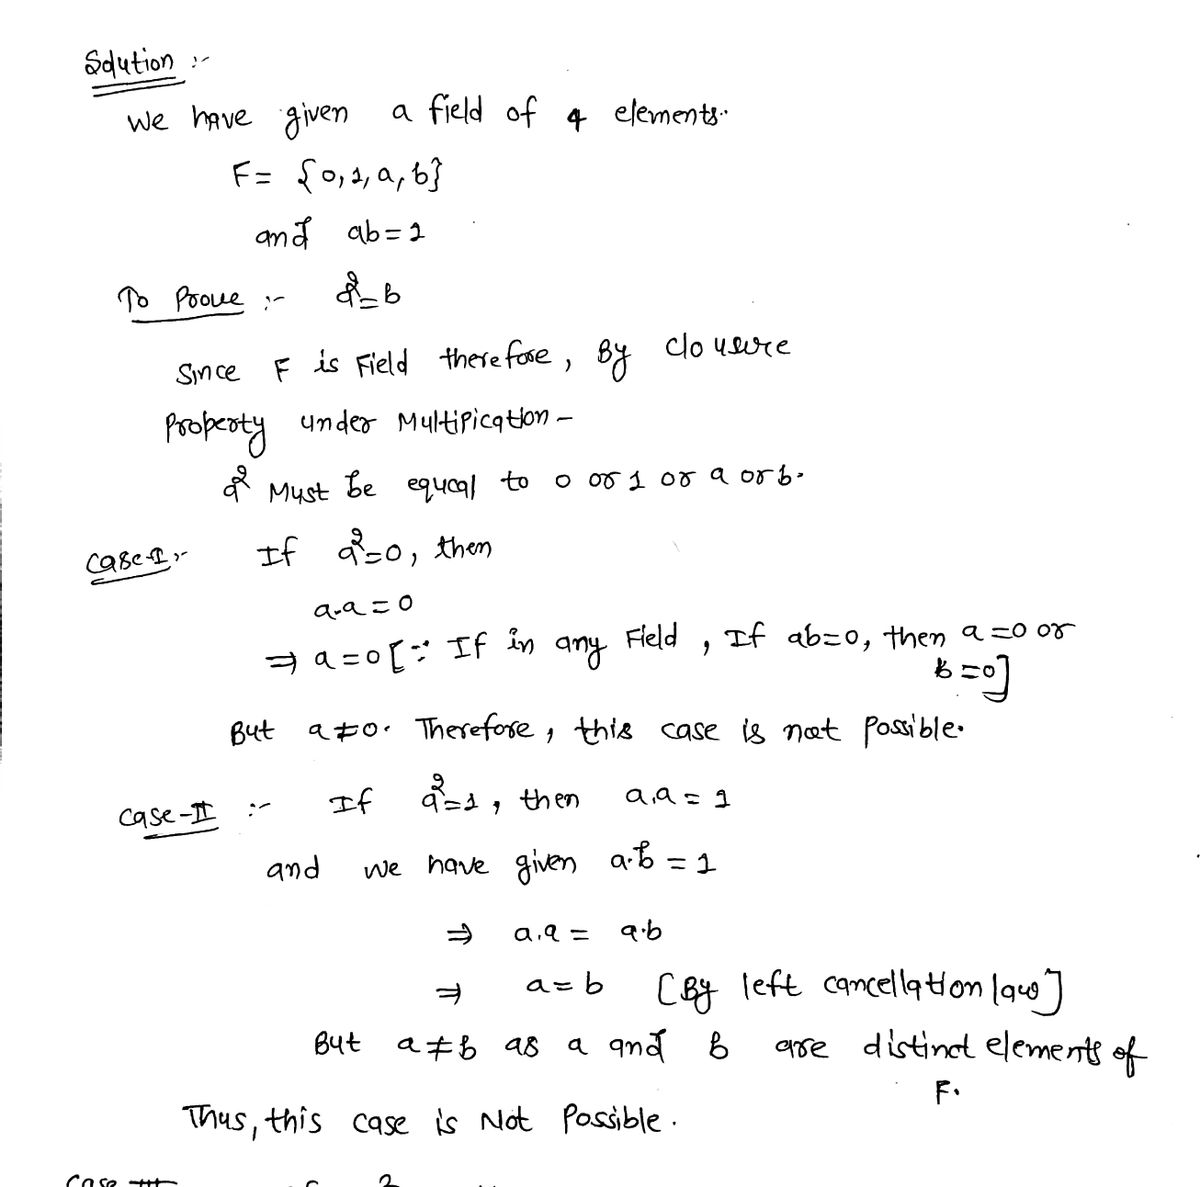 Solution :-
We have given a field of 4 elements.
F = {0, 1, a, b}
and ab = 1
To Proove :- a² = b
Since F is Field therefore, By clousure
Property under Multipication -
a² Must be equal to 0 or 1 or a or b.
Case-I :- If a² = 0, then
a.a = 0
⇒ a = 0 [∵ If in any Field, If ab=0, then a=0 or
b=0]
But a ≠ 0. Therefore, this case is not possible.
Case-II :- If a² = 1, then a.a = 1
and we have given a.b = 1
⇒ a.a = a.b
⇒ a = b [By left cancellation law]
But a ≠ b as a and b are distinct elements of
F.
Thus, this case is Not Possible.
Case III